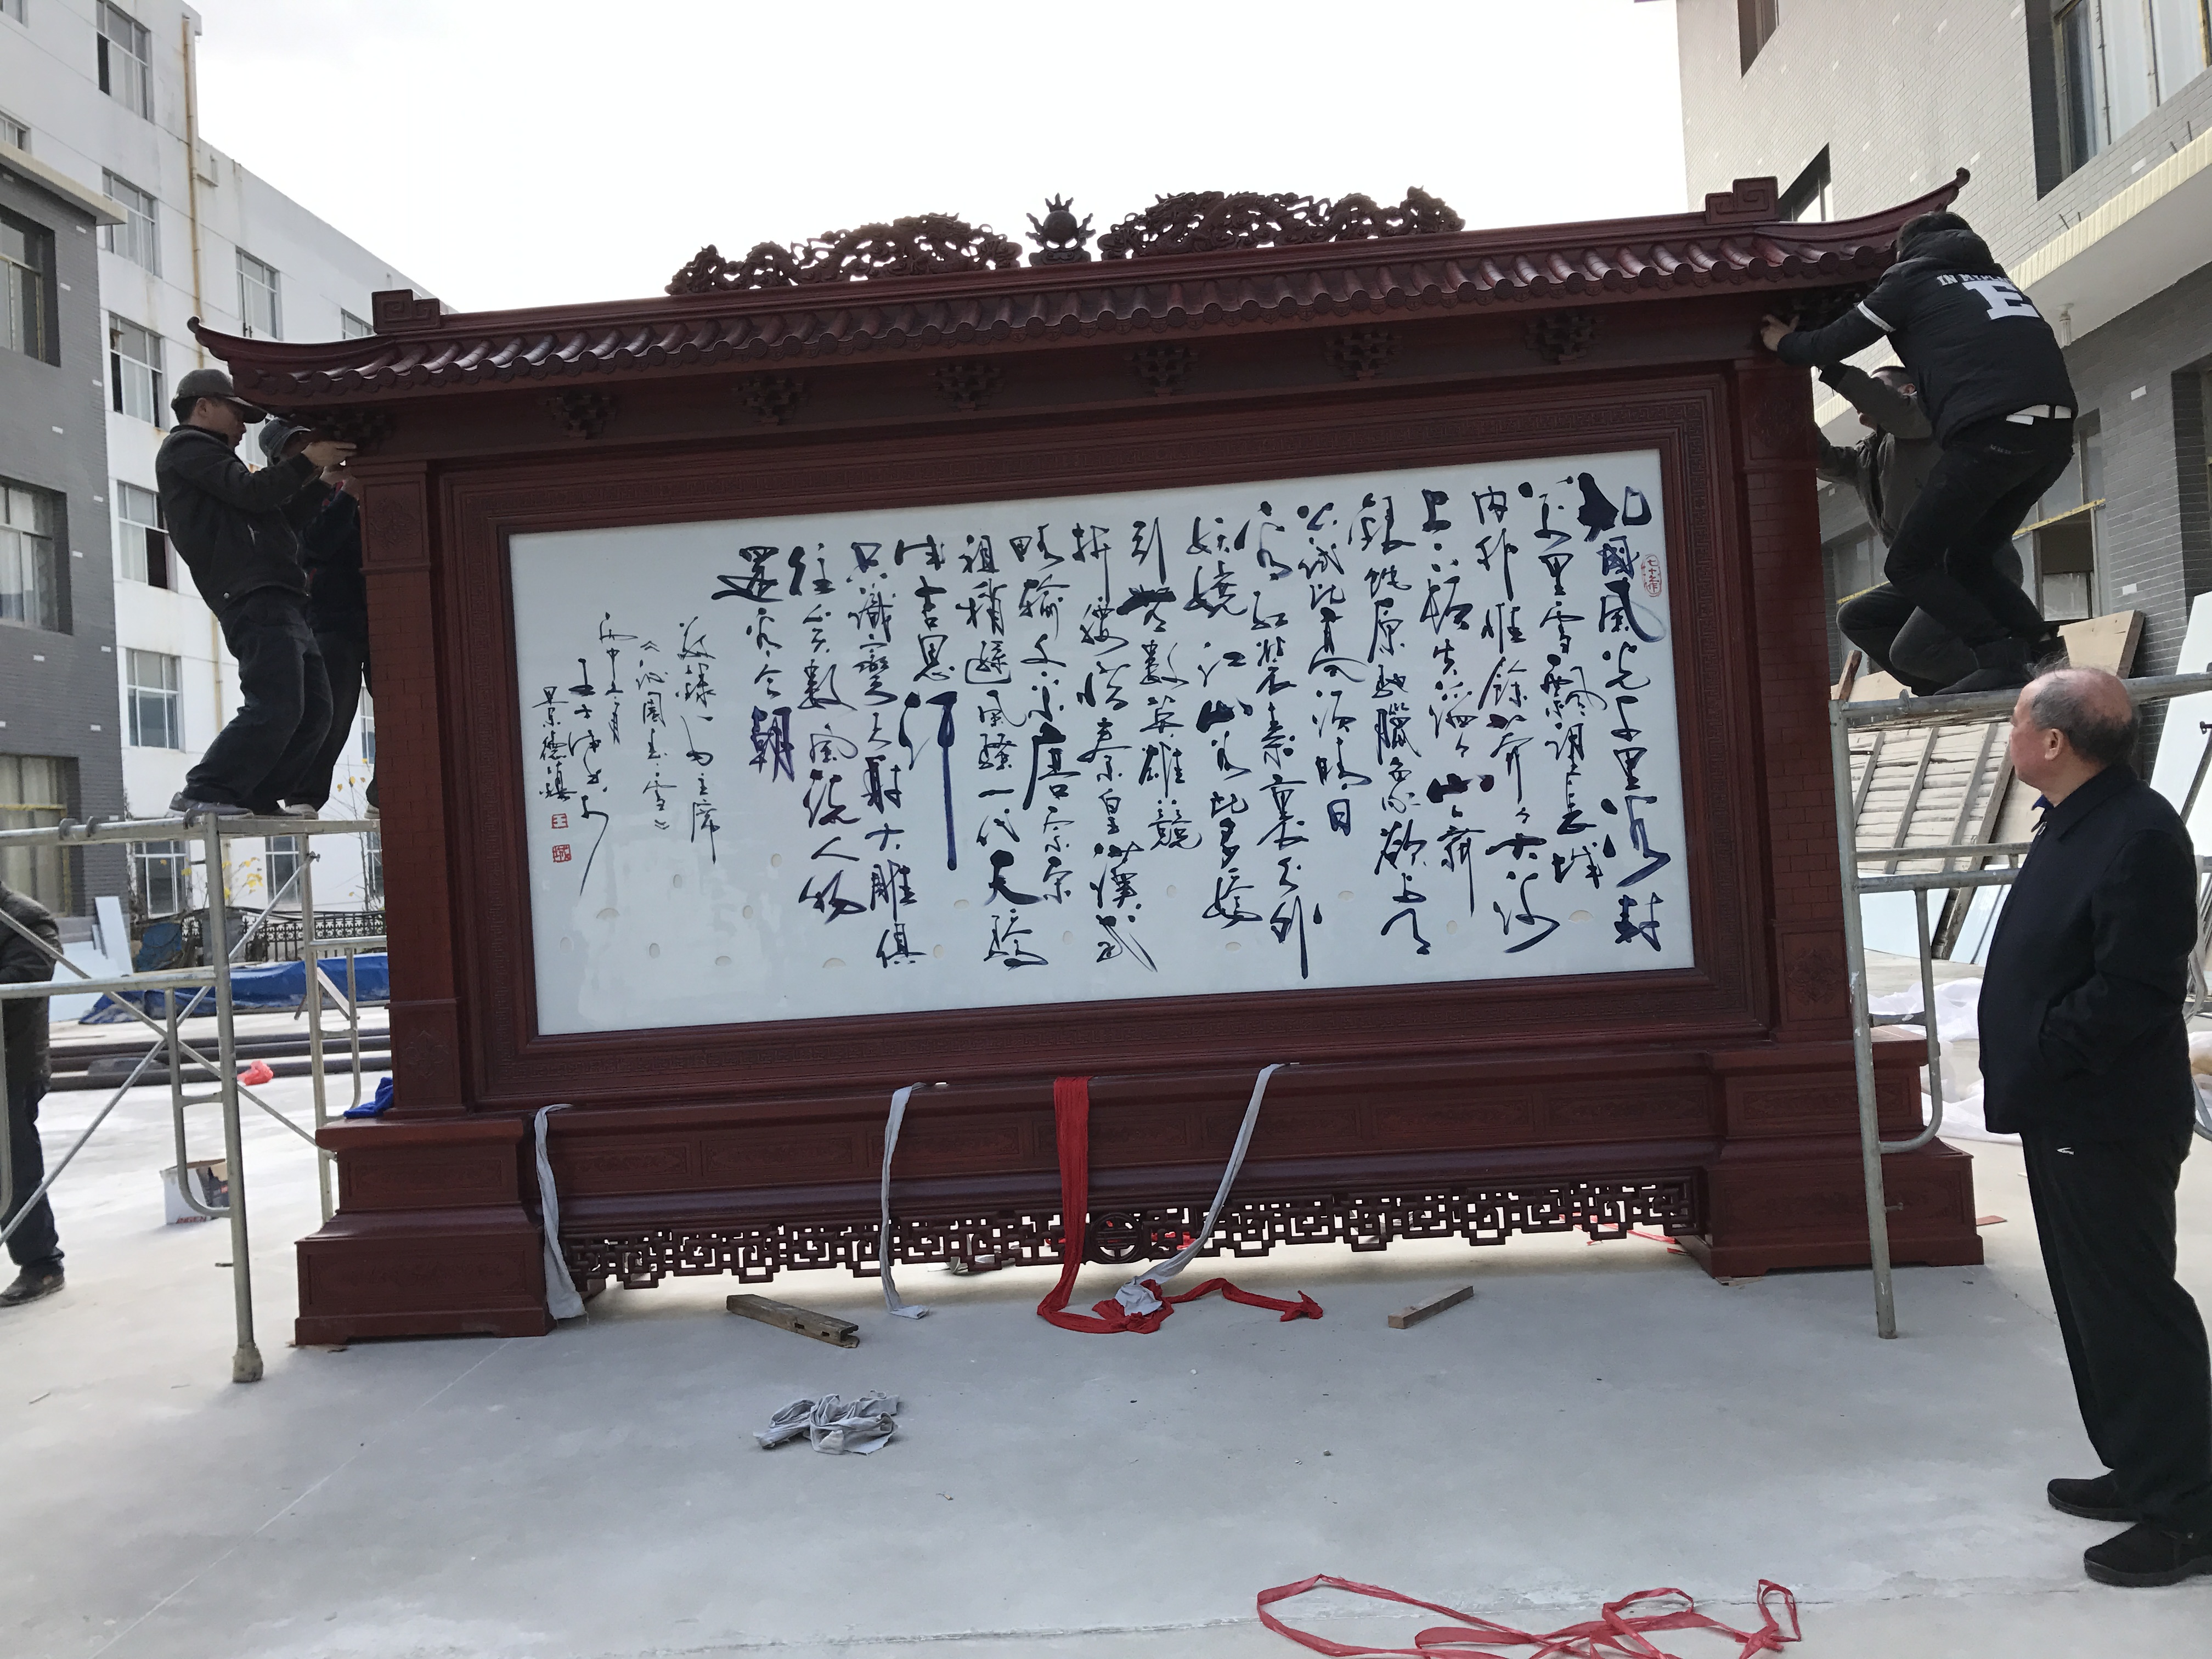 北國風光千里冰封
万里雪飄望長城
内外惟餘莽々大河
上下頓失滔々山舞
銀蛇原馳臘象欲与天
公試比高須晴日
看紅裝素裹分外
妖嬈江山如此多嬌
引無數英雄競
折腰惜秦皇漢武
略輸文采唐宗宋
祖稍遜風騷一代天驕
成吉思汗
只識彎弓射大雕俱
往矣數風流人物
還看今朝
敬錄毛主席
《沁園春雪》
丙申
景德鎮
王
E